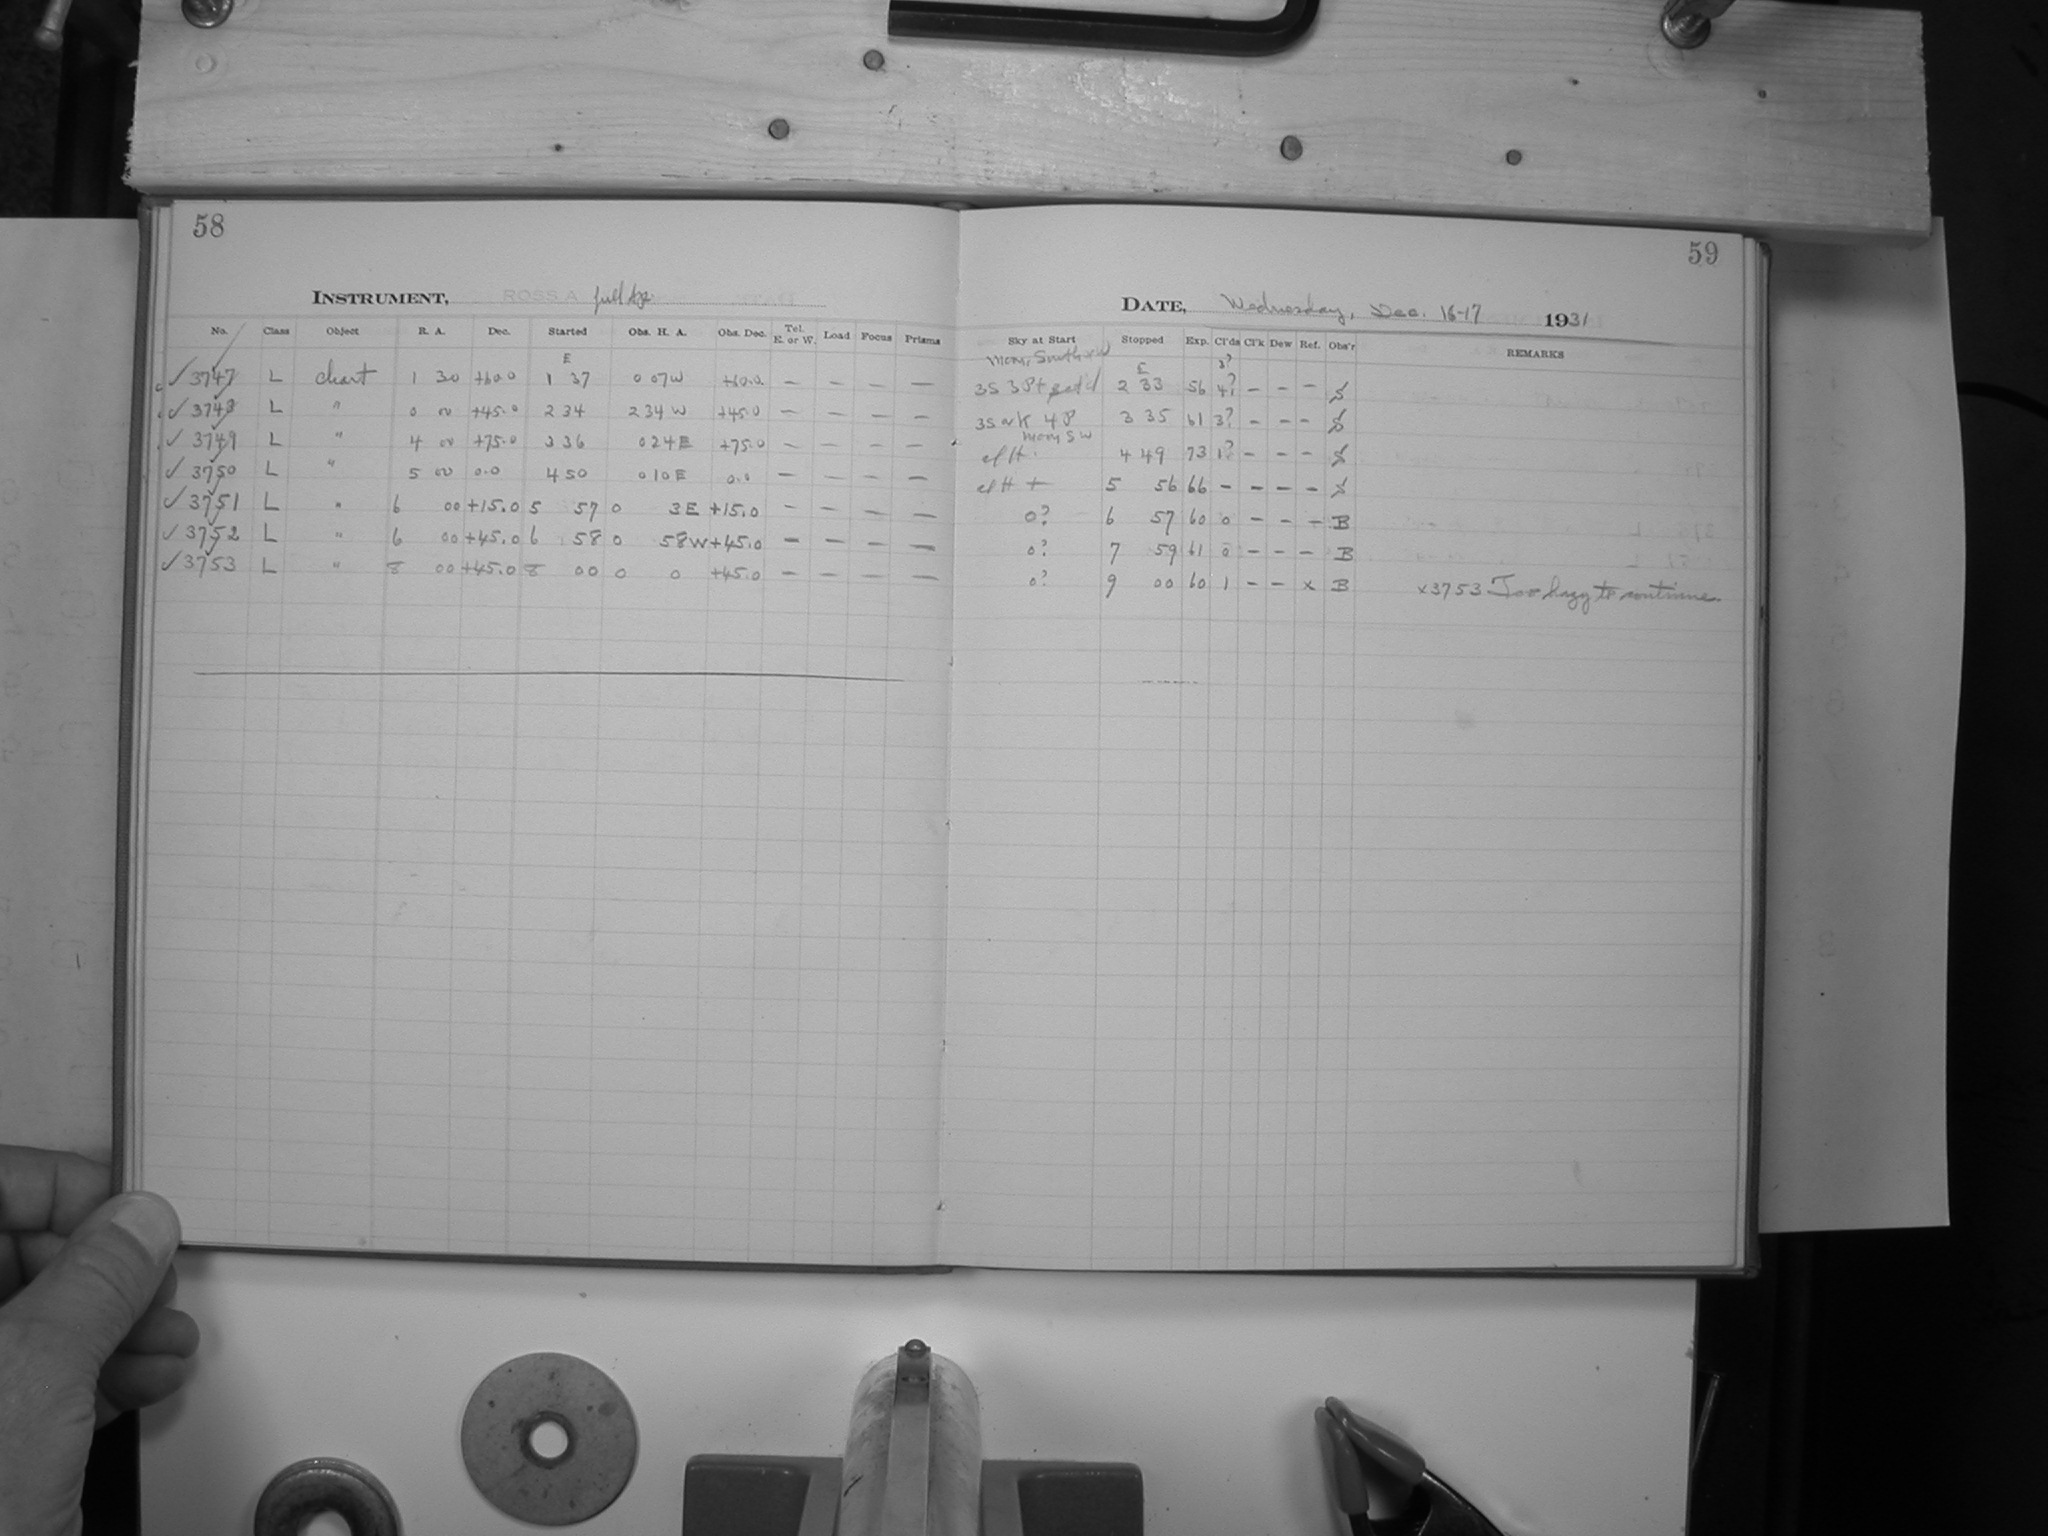 58
59
INSTRUMENT, ROSS A full
DATE, Wednesday, Dec. 16-17 1931
No. Class Object R. A. Dec. Started Obs. H. A. Obs. Dec. Tel. E. or W. Load Focus Prisms Sky at Start Stopped Exp. Cl'ds Cl'k Dew Ref. Obs'r REMARKS
E E 3?
✓ 3747 L chart 1 30 +60.0 1 37 0 07W +60.0 — — — — 3S 3P+ 2 33 56 4? — — — S
✓ 3748 L " 0 00 +45.0 2 34 2 34 W +45.0 — — — — 3S 4P 3 35 61 3? — — — S
moon SW
✓ 3749 L " 4 00 +75.0 3 36 0 24E +75.0 — — — — clH 4 49 73 1? — — — S
✓ 3750 L " 5 00 0.0 4 50 0 10E 0.0 — — — — clH + 5 56 66 — — — — S
✓ 3751 L " 6 00 +15.0 5 57 0 3E +15.0 — — — — 0? 6 57 60 0 — — — B
✓ 3752 L " 6 00 +45.0 6 58 0 58W +45.0 — — — — 0? 7 59 61 0 — — — B
✓ 3753 L " 8 00 +45.0 8 00 0 0 +45.0 — — — — 0? 9 00 60 1 — — x B x3753 Too hazy to continue.